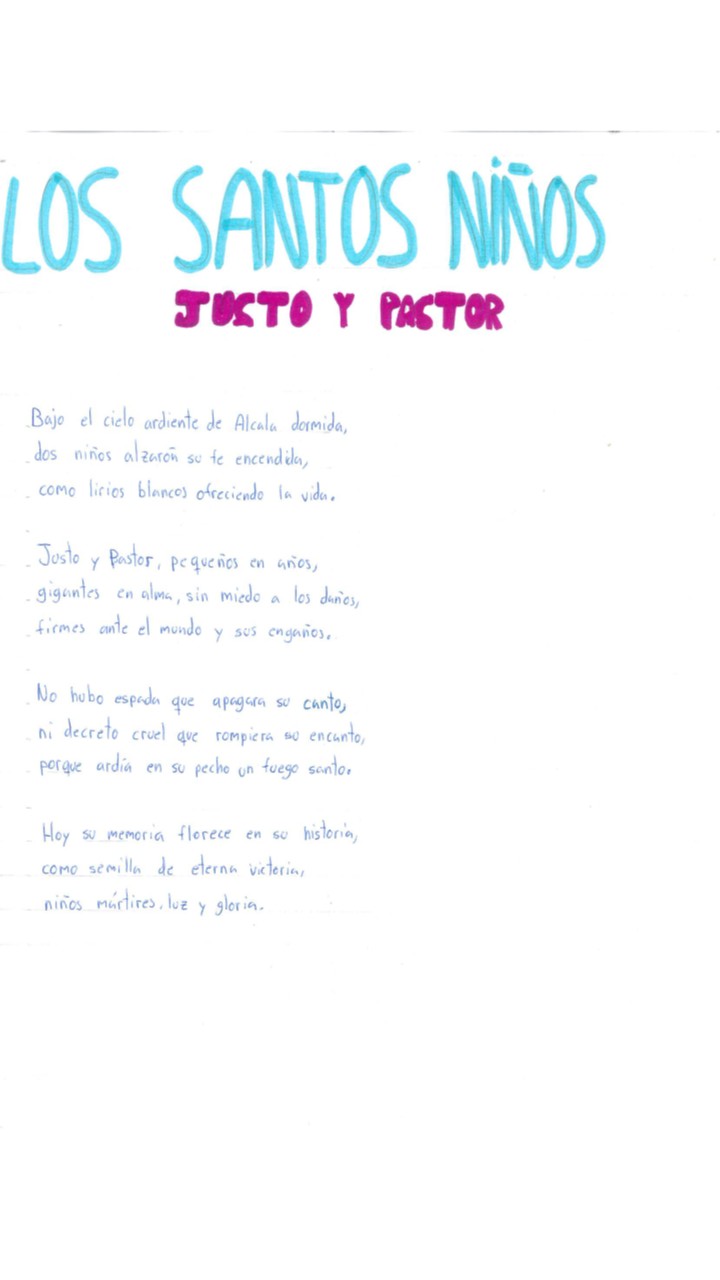 LOS SANTOS NIÑOS
JUSTO Y PASTOR
Bajo el cielo ardiente de Alcala dormida,
dos niños alzaron su fe encendida,
como lirios blancos ofreciendo la vida.
Justo y Pastor, pequeños en años,
gigantes en alma, sin miedo a los daños,
firmes ante el mundo y sus engaños.
No hubo espada que apagara su canto,
ni decreto cruel que rompiera su encanto,
porque ardía en su pecho un fuego santo.
Hoy su memoria florece en su historia,
como semilla de eterna victoria,
niños mártires, luz y gloria.